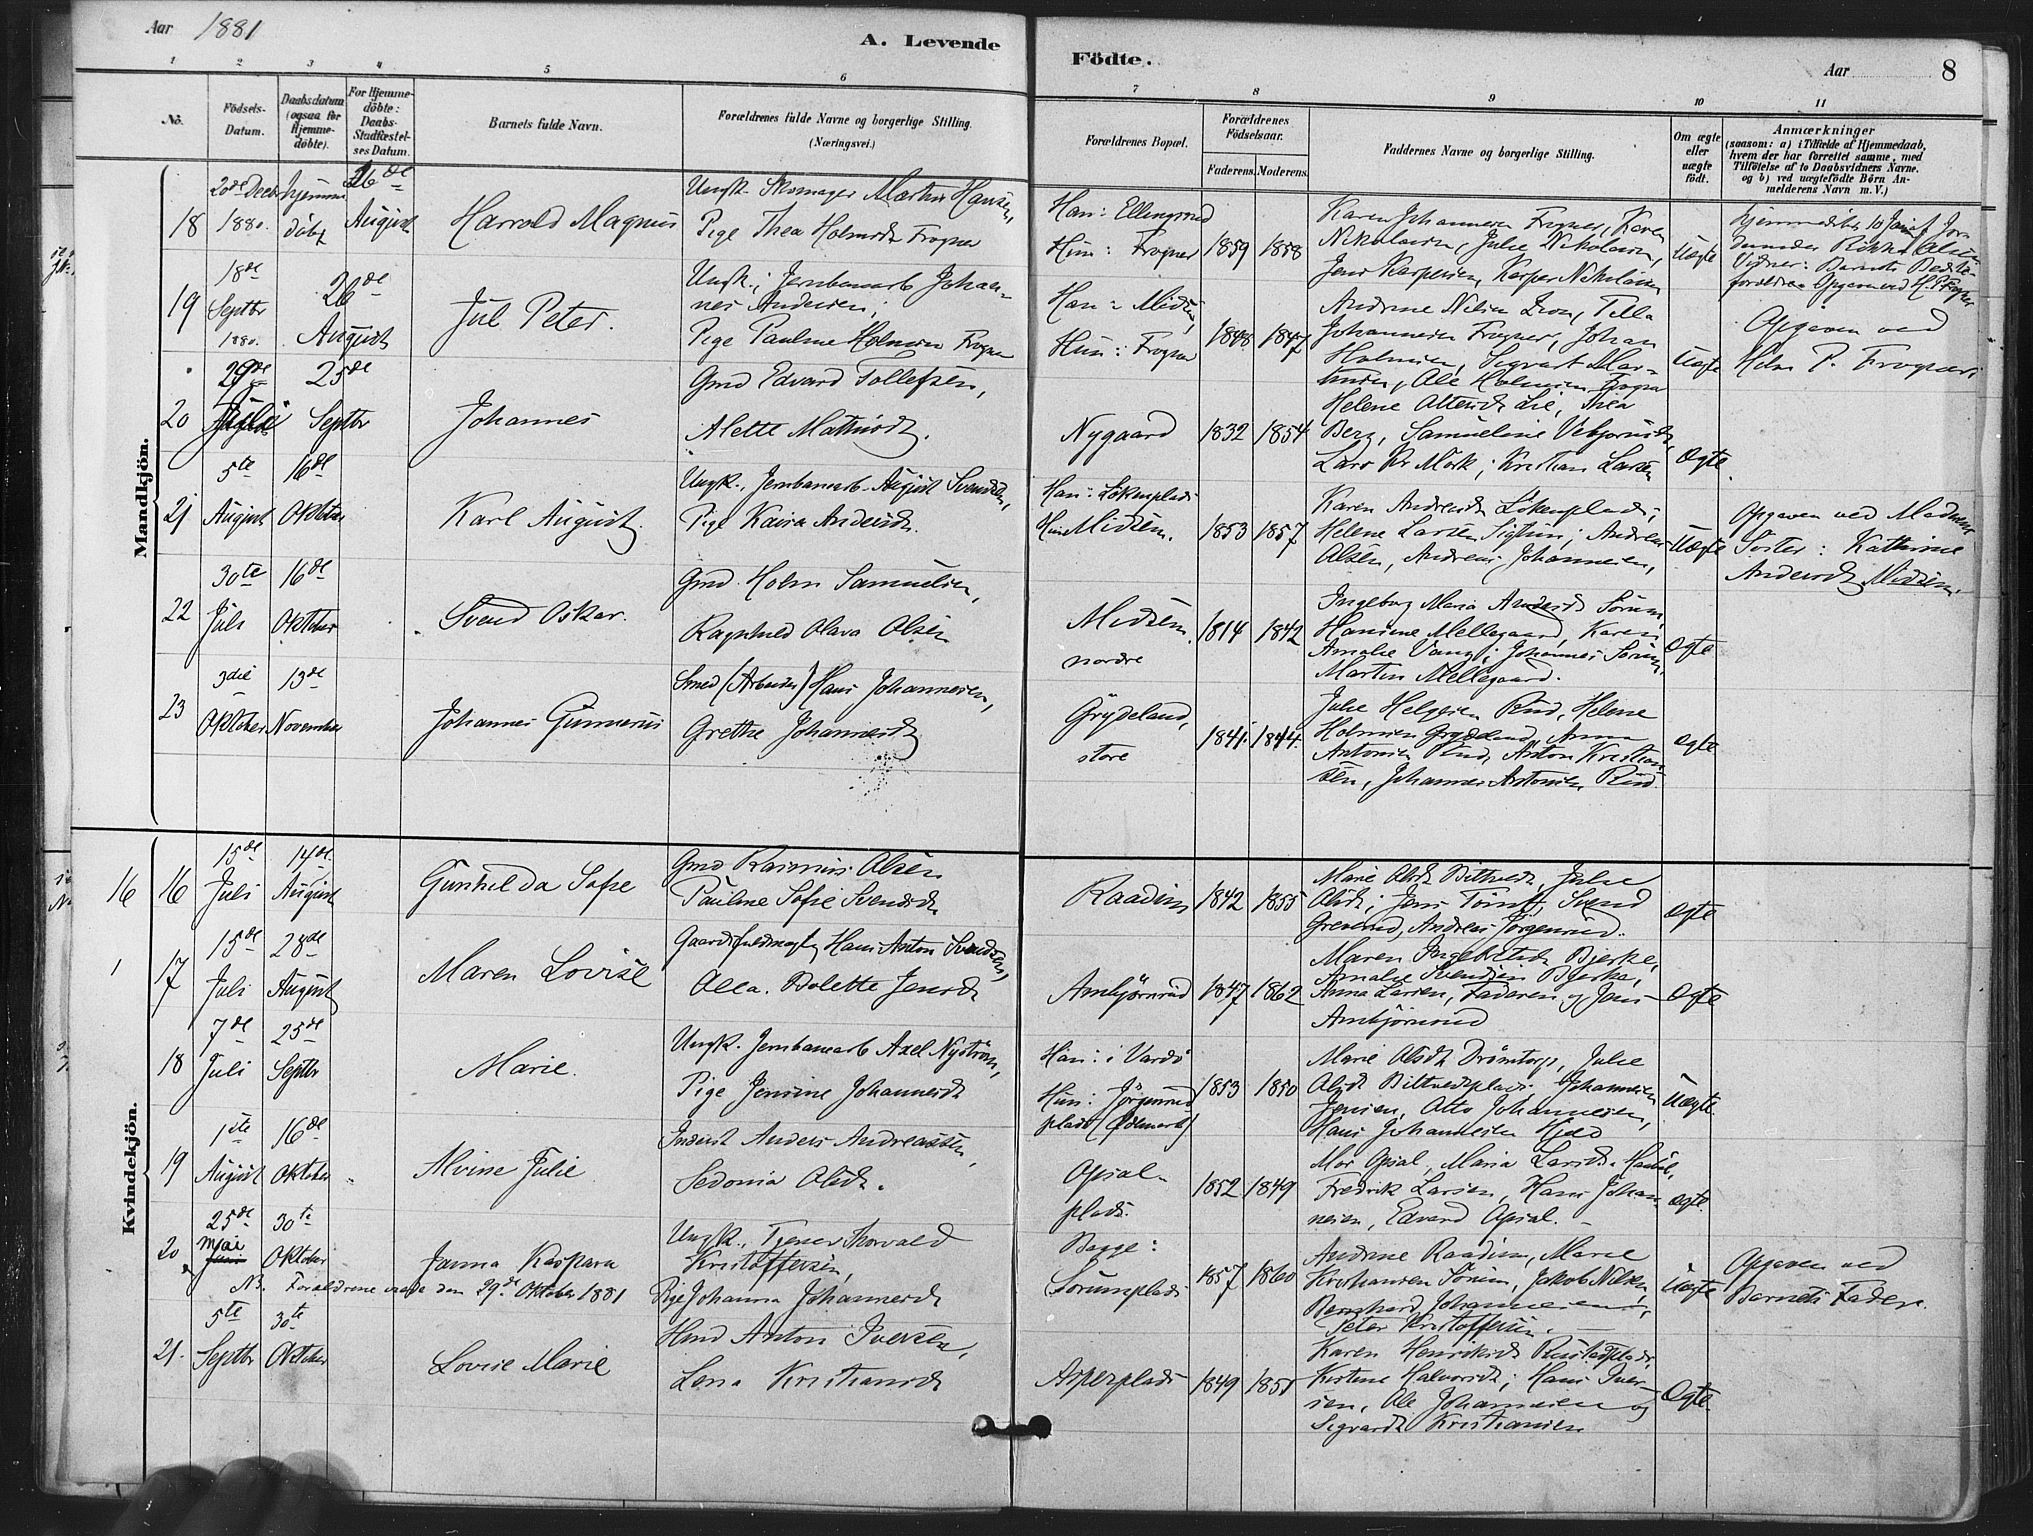 Aar 1881
A. Levende
Födte.
Aar
8
1 2 3 4 5 6 7 8 9 10 11
No.
Födsels-
Datum.
Daabsdatum
(ogsaa for
Hjemme-
döbte).
For Hjemme-
döbte:
Daabs-
Stadfæstel-
ses Datum.
Barnets fulde Navn.
Forældrenes fulde Navne og borgerlige Stilling.
(Næringsvei.)
Forældrenes Bopæl.
Forældrenes
Födselsaar.
Faderens.
Moderens.
Faddernes Navne og borgerlige Stilling.
Om ægte
eller
uægte
födt.
Anmærkninger
(saasom: a) i Tilfælde af Hjemmedaab,
hvem der har forrettet samme, med
Tilföielse af to Daabsvidners Navne.
og b) ved uægtefödte Börn An-
melderens Navn m. V.)
Mandkjön.
18
20de Decbr
1880.
hjemme
döbt
26de
August
Harrald Magnus
Ungk. Skomager Martin Hansen,
Pige Thea Holmsdt Frogner
Han: Ellingsrud
Hun: Frogner
1859 1858
Karen Johannesen Frogner, Karen
Nikolaisen, Julie Nikolaisen,
Jens Kaspersen, Kasper Nikolaisen
Uægte
19
18de
Septbr
1880.
26de
August
Jul Peter.
Ungk.; Jernbanearb Johan-
nes Andersen;
Pige Pauline Holmsen Frogner
Han: Midsem,
Hun: Frogner
1848 1847
Johannesen Frogner, Johan
Holmsen, Ole Holmsen Frogner
Uægte
Opgiven ved
Holm P. Frogner
20
29de
Juli
25de
Septbr
Johannes
Gmd Edvard Tollefsen,
Alette Mathisdt.
Nygaard
1832 1854
Berg, Samueline
Lars Kr Mörk; Kristian Larsen
Ægte.
21
5te
August
16de
Oktober
Karl August.
Ungk., Jernbanearb. August Svendsen,
Pige Kaisa Andersdt.
Han: Lökenplads
Hun Midsem.
1853 1857
Karen Andersdt Lökenplads;
Helene Larsen Sigstun; Andreas
Olsen, Andreas Johannesen,
Uægte
Opgiven ved Moderens
Söster: Kathrine
Andersdt Midsem.
22
30te
Juli
16de
Oktober
Svend Oskar.
Gmd. Holm Samuelsen,
Ragnhild Olava Olsen
Midsem
nordre
1814 1842
Ingeborg Maria Andersdt Sörum,
Hansine Mellegaard, Karen
Amalie Vang; Johannes Sörum,
Martin Mellegaard.
Ægte
23
3die
Oktober
13de
November
Johannes Gunnerius
Smed (Arbeider) Hans Johannesen,
Grethe Johannesdt
Grydeland,
store
1841. 1844.
Julie Helgesen Rud, Helene
Holmsen Grydeland, Anna
Antonsen Rud, Anton Kristian-
sen, Johannes Antonsen Rud.
Ægte
Kvindekjön.
16 16
15de
Juli
14de.
August
Gunhilda Sofie
Gmd Rasmus Olsen
Pauline Sofie Svendsdt
Raadim
1842 1855
Marie Olsdt Bittvedt, Julie
Olsdt; Jens Svend
Grenerud, Andreas Jörgensrud.
Ægte
1 17
15de
Juli
28de
August
Maren Lovise
Gaardsfuldmægtig Hans Anton Svendsen,
Olea Bolette Jensdt
Ambjörnrud
1847 1862
Maren Ingebretsdt Bjerke,
Amalie Svendsen Bjerke,
Anna Larsen, Faderen og Jens
Ambjörnrud
Ægte
18
7de
Juli
25de
Septbr
Marie.
Ungk. Jernbanearb Axel Nyström,
Pige Jensine Johannesdt
Han: i Vardö
Hun: Jörgensrud
plads (Ödemark)
1853 1850
Marie Olsdt Drömtorp, Julie
Olsdt Bittvedtplads. Johannes
Jensen, Otto Johannesen,
Hans Johannesen Kjeld
Uægte
19
1ste
August
16de
Oktober
Alvine Julie
Inderst Anders Andreassen,
Sedonia Olsdt.
Opsal-
plads.
1852 1849
Mor Opsal, Maria Larsdt
Fredrik Larsen, Hans Johan-
nesen, Edvard Opsal.
Ægte
20
25de
Mai
30te
Oktober
Janna Kaspara
NB. Forældrene viede den 29de Oktober 1881
Ungk., Tjener Thorvald
Kristoffersen,
Pige Johanna Johannesdt
Bagge:
Sörumplads
1857 1860
Andrine Raadim, Marie
Kristiansen Sörum, Jakob Nilsen
Bernhard Johannesen,
Peter Kristoffersen.
Uægte
Opgiven ved
Barnets Fader.
21.
5te
Septbr
30te
Oktober
Lovise Marie
Hmd Anton Iversen,
Lena Kristiansdt
Asperplads
1849 1851
Karen Henriksdt Rustadplads,
Kirstine Halvorsdt; Hans Iver-
sen, Ole Johannesen og
Sigvardt Kristiansen
Ægte.